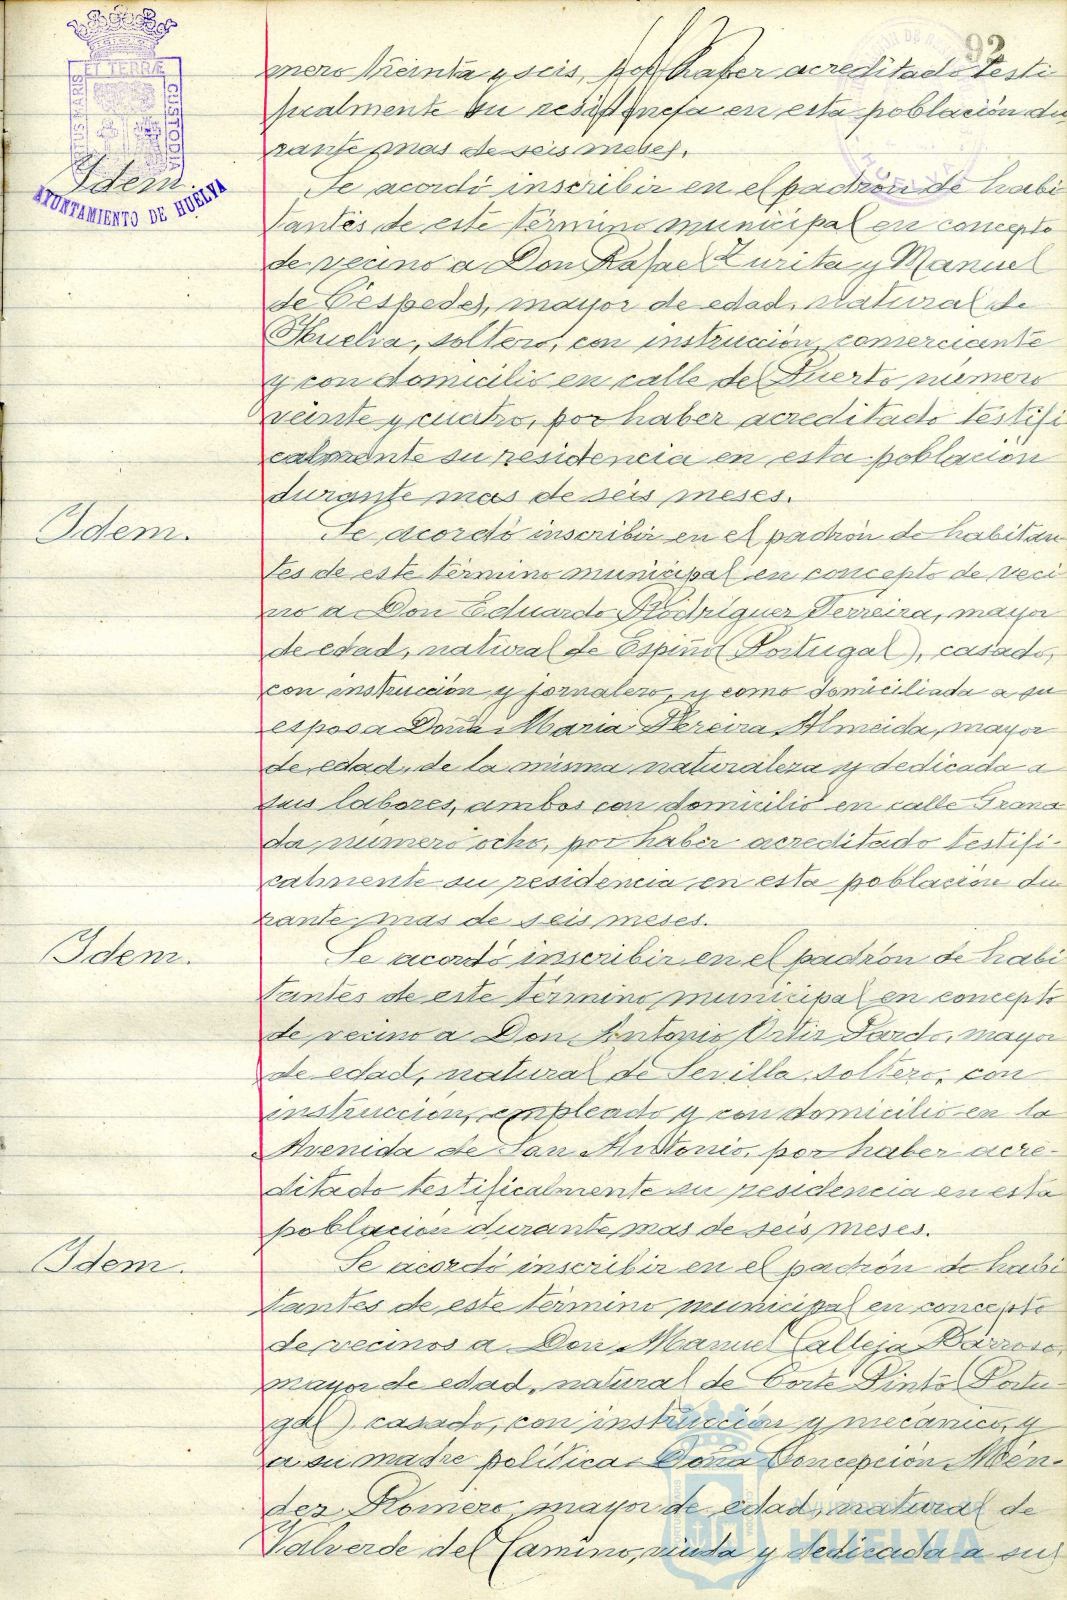 92
PORTUS MARIS
ET TERRÆ
CUSTODIA
AYUNTAMIENTO DE HUELVA
HUELVA
mero treinta y seis, por haber acreditado testi
ficalmente su residencia en esta población du
rante mas de seis meses.
Idem.
Se acordó inscribir en el padrón de habi
tantes de este término municipal en concepto
de vecino a Don Rafael Zurita y Manuel
de Céspedes, mayor de edad, natural de
Huelva, soltero, con instrucción, comerciante
y con domicilio en calle del Puerto número
veinte y cuatro, por haber acreditado testifi
calmente su residencia en esta población
durante mas de seis meses.
Idem.
Se acordó inscribir en el padrón de habitan
tes de este término municipal en concepto de veci
no a Don Eduardo Rodríguez Ferreira, mayor
de edad, natural de Espiño (Portugal), casado,
con instrucción y jornalero, y como domiciliada a su
esposa Doña Maria Pereira Almeida, mayor
de edad, de la misma naturaleza y dedicada a
sus labores, ambos con domicilio en calle Grana
da número ocho, por haber acreditado testifi-
calmente su residencia en esta población du
rante mas de seis meses.
Idem.
Se acordó inscribir en el padrón de habi
tantes de este término municipal en concepto
de vecino a Don Antonio Ortiz Pardo, mayor
de edad, natural de Sevilla, soltero, con
instrucción, empleado y con domicilio en la
Avenida de San Antonio, por haber acre-
ditado testificalmente su residencia en esta
población durante mas de seis meses.
Idem.
Se acordó inscribir en el padrón de habi
tantes de este término municipal en concepto
de vecinos a Don Manuel Calleja Barroso,
mayor de edad, natural de Corte Pinto (Portu-
gal) casado, con instrucción y mecánico, y
a su madre política Doña Concepción Mén-
dez Romero mayor de edad, natural de
Valverde del Camino, viuda y dedicada a sus
HUELVA